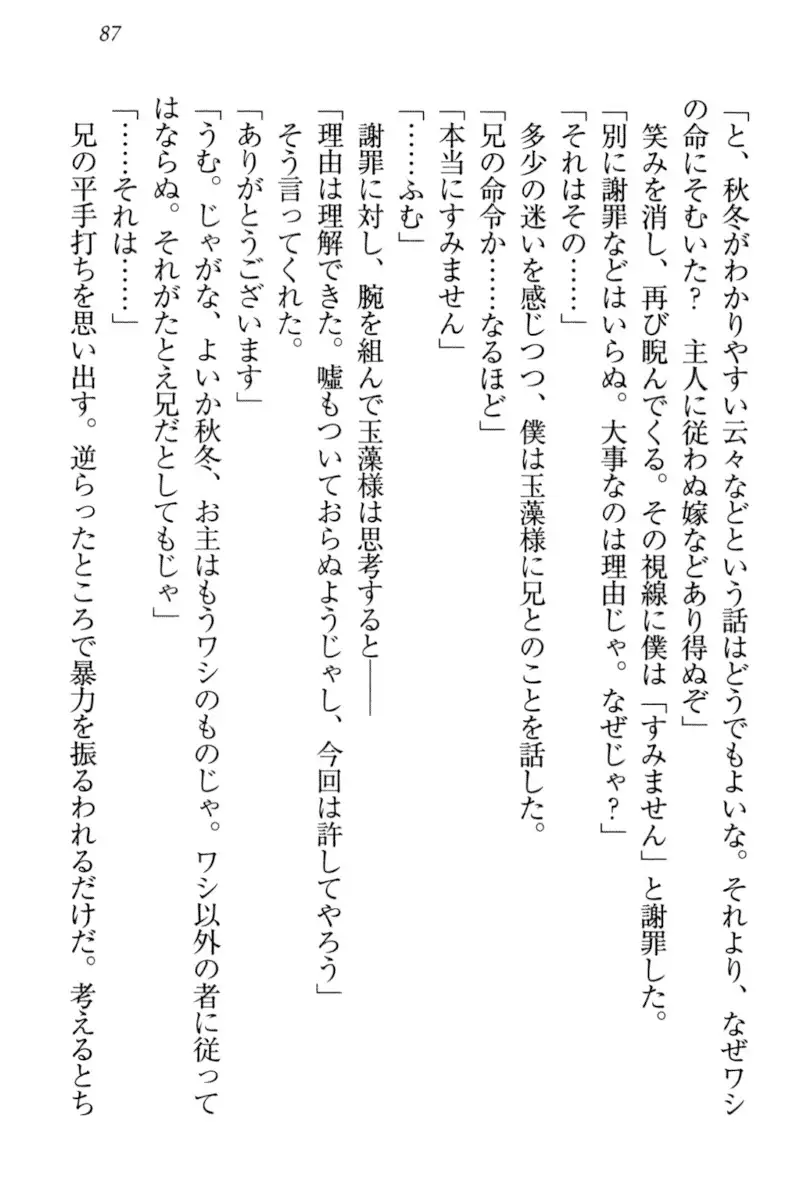 87
「と、秋冬がわかりやすい云々などという話はどうでもよいな。それより、なぜワシ
の命にそむいた?　主人に従わぬ嫁などあり得ぬぞ」
笑みを消し、再び睨んでくる。その視線に僕は「すみません」と謝罪した。
「別に謝罪などはいらぬ。大事なのは理由じゃ。なぜじゃ?」
「それはその……」
多少の迷いを感じつつ、僕は玉藻様に兄とのことを話した。
「兄の命令か……なるほど」
「本当にすみません」
「……ふむ」
謝罪に対し、腕を組んで玉藻様は思考すると――
「理由は理解できた。嘘もついておらぬようじゃし、今回は許してやろう」
そう言ってくれた。
「ありがとうございます」
「うむ。じゃがな、よいか秋冬、お主はもうワシのものじゃ。ワシ以外の者に従って
はならぬ。それがたとえ兄だとしてもじゃ」
「……それは……」
兄の平手打ちを思い出す。逆らったところで暴力を振るわれるだけだ。考えるとち